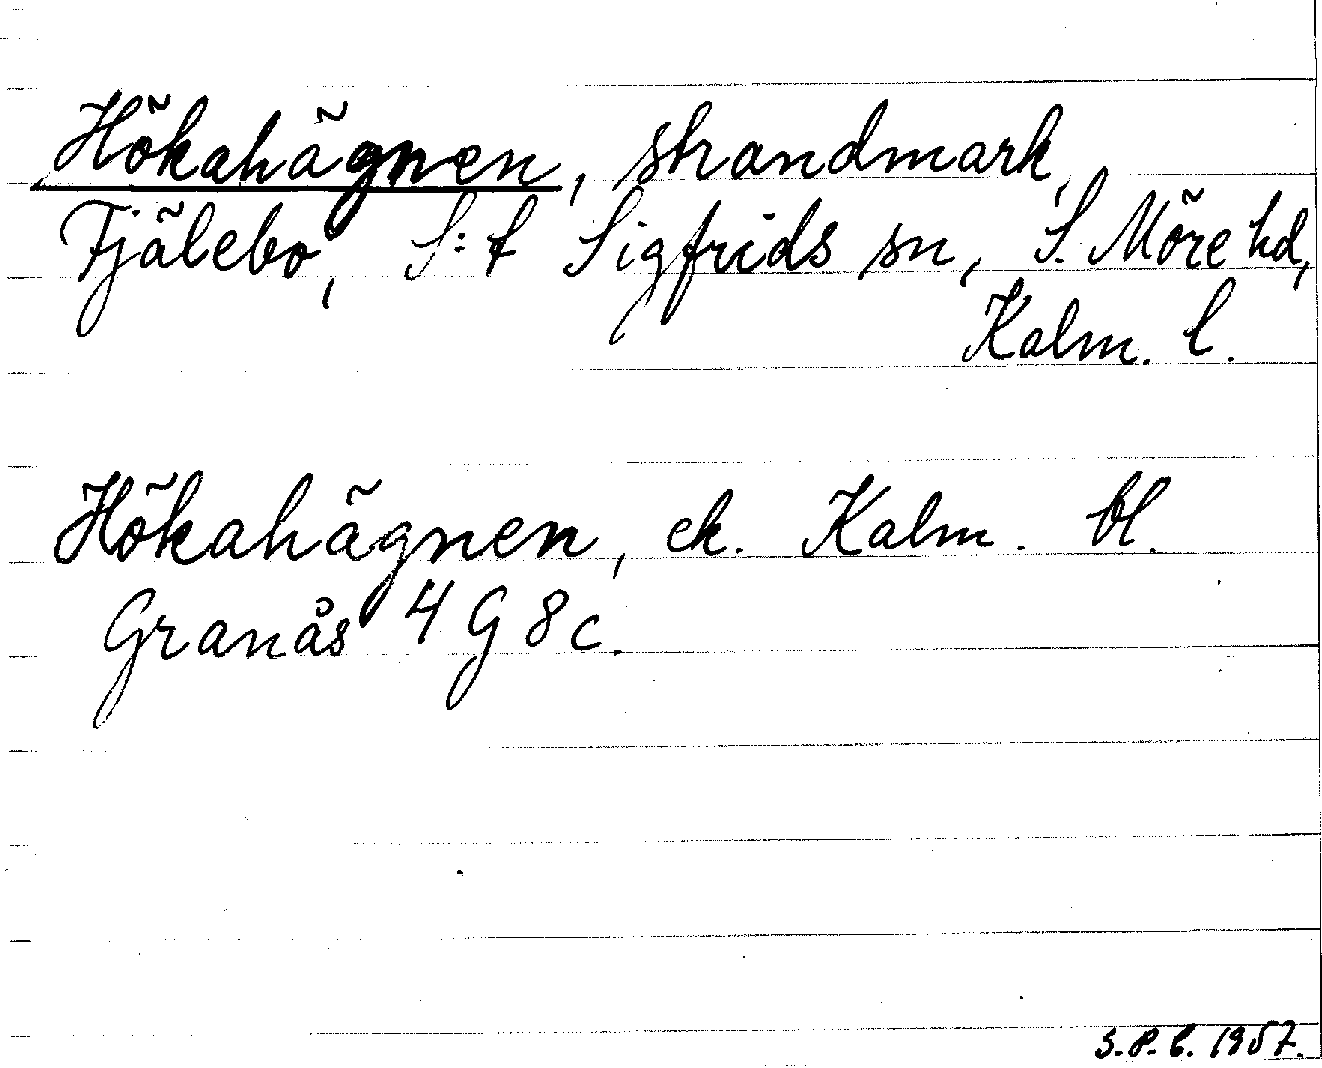 Hökahägnen, strandmark,
Fjälebo, S:t Sigfrids sn, S. Möre hd,
Kalm. l.
Hökahägnen, ek. Kalm. bl.
Granås 4 G 8 c.
S.P.C. 1957.